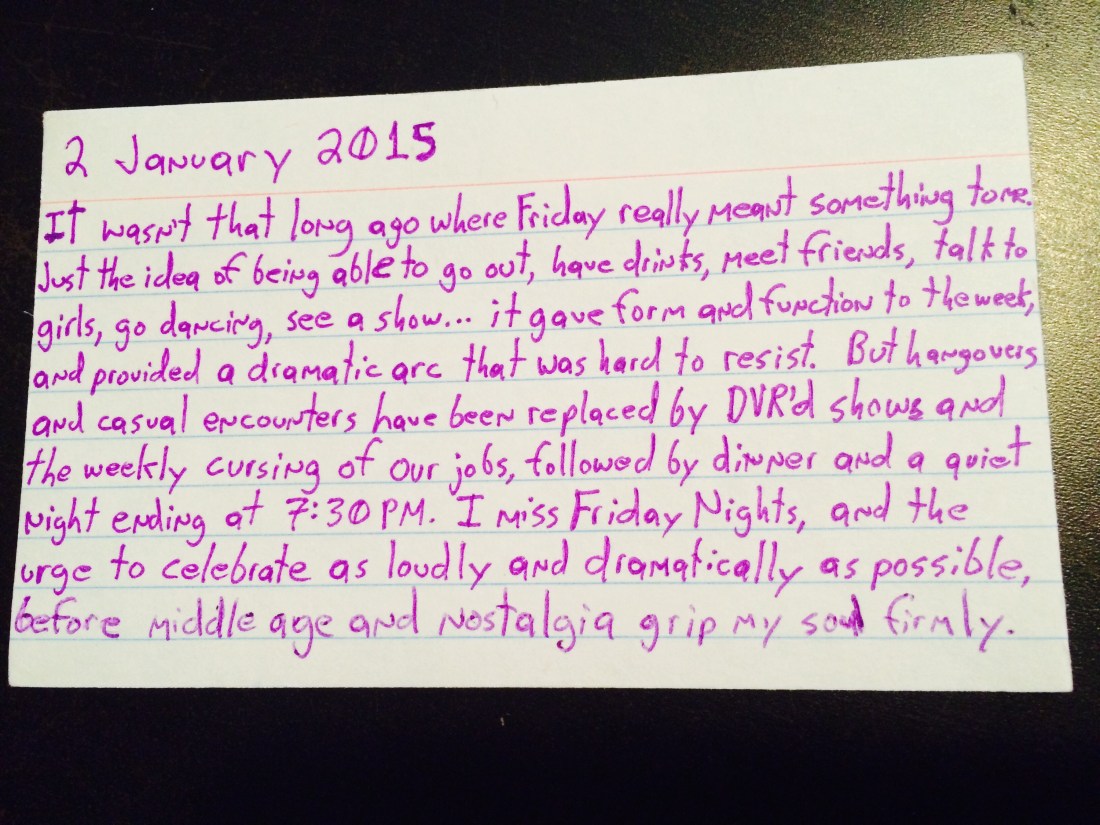 2 January 2015
It wasn't that long ago where Friday really meant something to me.
Just the idea of being able to go out, have drinks, meet friends, talk to
girls, go dancing, see a show... it gave form and function to the week,
and provided a dramatic arc that was hard to resist. But hangovers
and casual encounters have been replaced by DVR'd shows and
the weekly cursing of our jobs, followed by dinner and a quiet
night ending at 7:30 PM. I miss Friday Nights, and the
urge to celebrate as loudly and dramatically as possible,
before middle age and nostalgia grip my soul firmly.